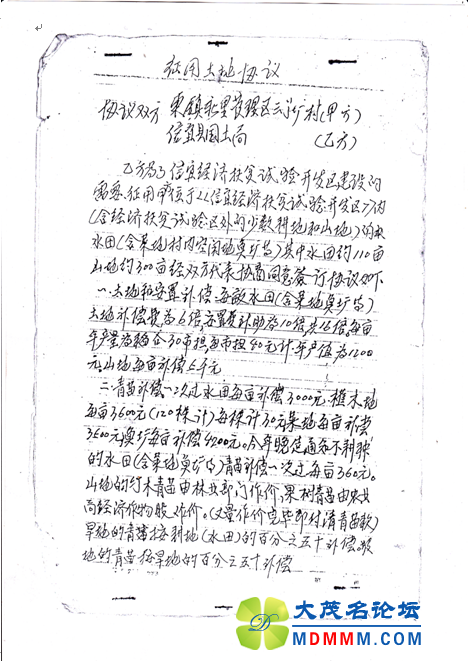 征用土地协议
协议双方 东镇永里管理区云厅村(甲方)
信宜县国土局 (乙方)
乙方为了信宜经济扶贫试验开发区建设的
需要,征用甲方位于信宜经济扶贫试验开发区内
(含经济扶贫试验区外的少数耕地和山地)的
水田(含果地村内空闲地鱼圹等)其中水田约110亩
山地约300亩经双方代表协商同意签订协议如下
一、土地和安置补偿,每亩水田(含果地鱼圹等)
土地补偿费为6倍,安置费补助为10倍,共16倍,每亩
年产量为稻谷30市担,每市担40元计年产值为1200
元,山地每亩补偿 千元
二、青苗补偿一次过水田每亩补偿3000元,植木地
每亩3600元(120株计)每株计30元果地每亩补偿
3600元鱼圹每亩补偿4200元。今年晚造通知不种
的水田(含果地鱼圹等)青苗补偿一次过每亩360元。
山地的竹木青苗由林业部门作价,果树青苗由农业
局经济作物股作价。(丈量作价完毕即付清青苗款)
旱地的青苗按耕地(水田)的百分之五十补偿,
地的青苗按旱地的百分之五十补偿
大茂名论坛
MDMMM.COM